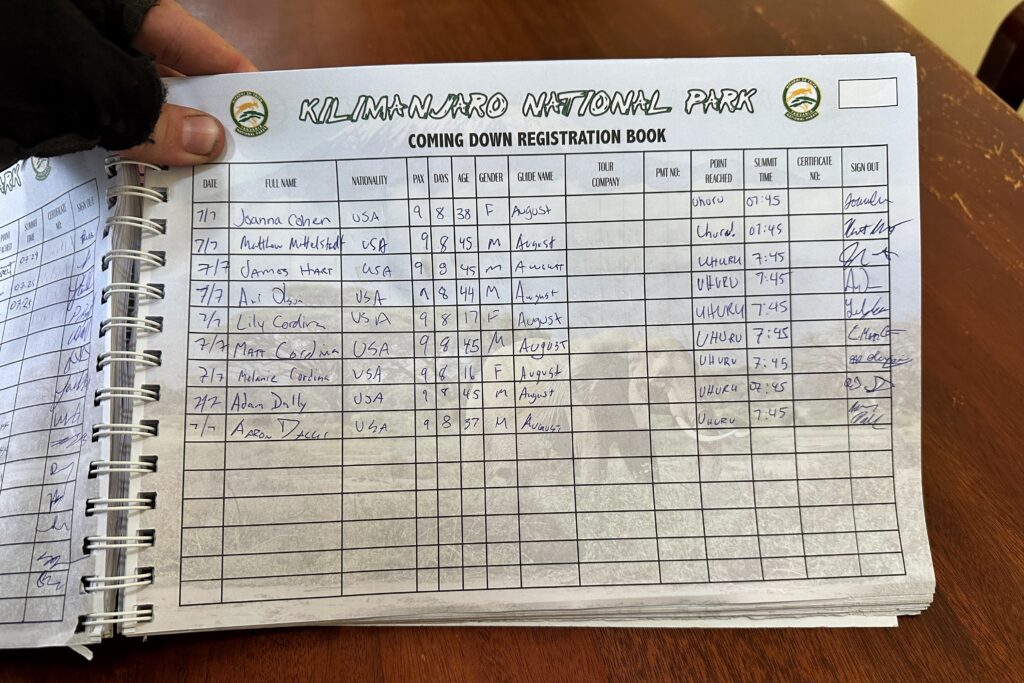 KILIMANJARO NATIONAL PARK
COMING DOWN REGISTRATION BOOK
DATE FULL NAME NATIONALITY PAX DAYS AGE GENDER GUIDE NAME TOUR COMPANY PMT NO: POINT REACHED SUMMIT TIME CERTIFICATE NO: SIGN OUT
7/7 Joanna Cohen USA 9 8 38 F August Uhuru 07:45
7/7 Matthew Mittelstedt USA 9 8 45 M August Uhuru 07:45
7/7 James Hart USA 9 8 45 M August UHURU 7:45
7/7 USA 9 8 44 M August UHURU 7:45
7/7 Lily Cordina USA 9 8 17 F August UHURU 7:45
7/7 Matt Cordina USA 9 8 45 M August UHURU 7:45
7/7 Melanie Cordina USA 9 8 16 F August UHURU 7:45
7/7 Adam Dally USA 9 8 45 M August UHURU 07:45
7/7 Aaron USA 9 8 37 M August UHURU 7:45